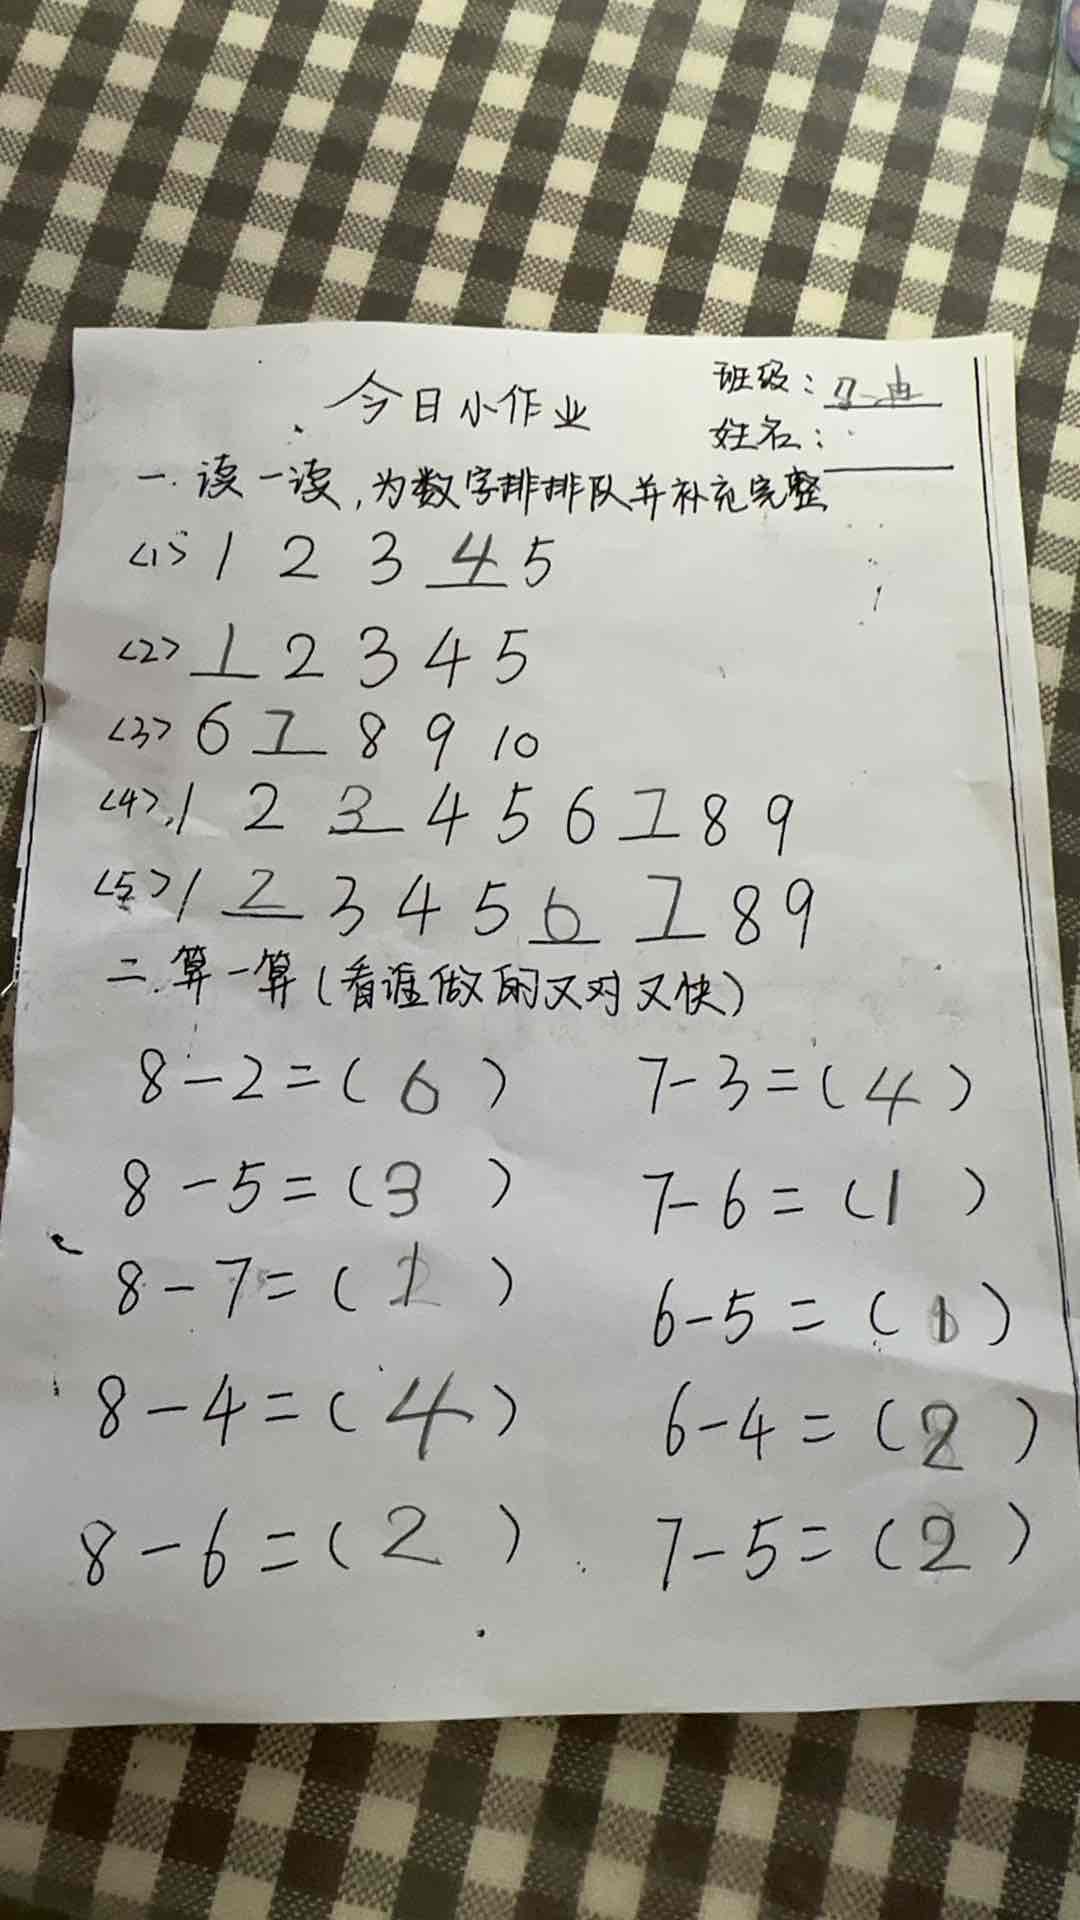 今日小作业
班级：
姓名：
一.读一读,为数字排排队并补充完整
<1> 1 2 3 4 5
<2> 1 2 3 4 5
<3> 6 7 8 9 10
<4>. 1 2 3 4 5 6 7 8 9
<5> 1 2 3 4 5 6 7 8 9
二.算一算(看谁做的又对又快)
8-2=(6) 7-3=(4)
8-5=(3) 7-6=(1)
8-7=(1) 6-5=(1)
8-4=(4) 6-4=(2)
8-6=(2) 7-5=(2)